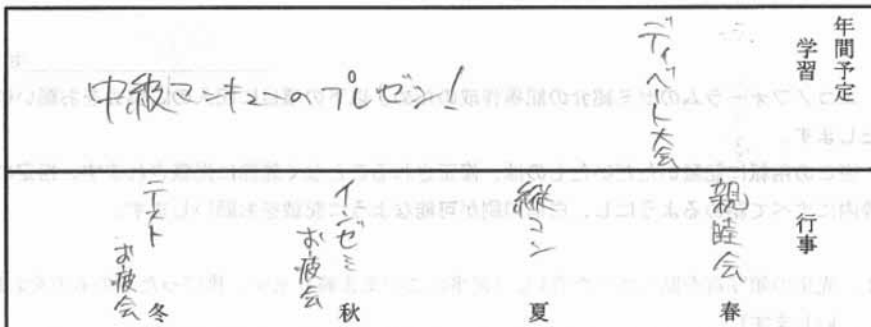 年間予定
学習
ディベート大会
中級マンキューのプレゼン!
行事
春
親睦会
夏
縦コン
秋
インゼミ
お疲会
冬
テスト
お疲会